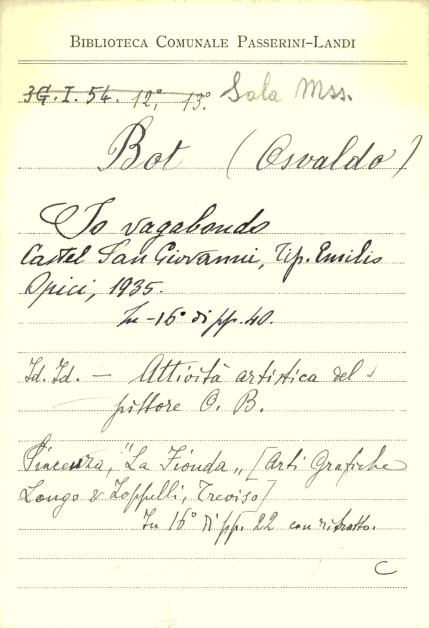 BIBLIOTECA COMUNALE PASSERINI-LANDI
3G.I.54. 12°, 13°. Sala Mss.
Bot (Osvaldo)
Io vagabondo
Castel San Giovanni, Tip. Emilio
Opici, 1935.
In-16° di pp. 40.
Id. Id. — Attività artistica del
pittore O. B.
Piacenza, "La Fionda" [Arti Grafiche
Longo & Zoppelli, Treviso]
In 16° di pp. 22 con ritratto.
C